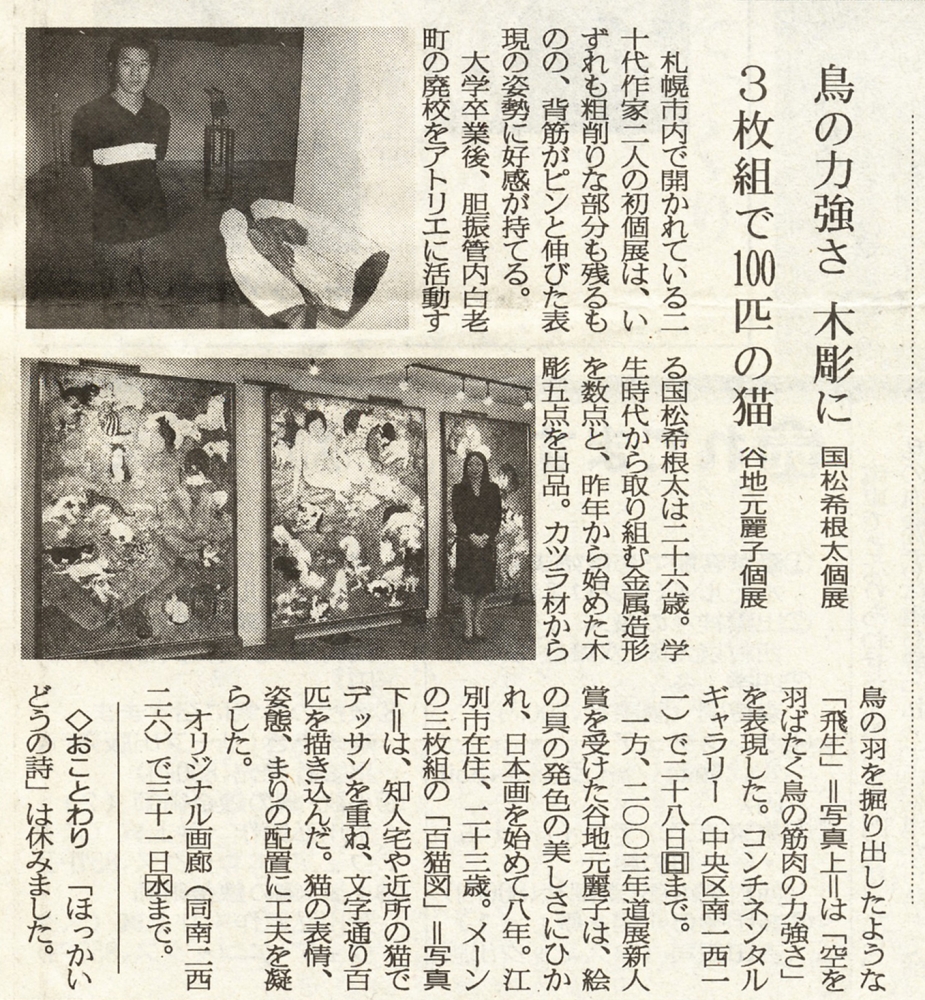 鳥の力強さ 木彫に 国松希根太個展
3枚組で100匹の猫 谷地元麗子個展
札幌市内で開かれている二
十代作家二人の初個展は、い
ずれも粗削りな部分も残るも
のの、背筋がピンと伸びた表
現の姿勢に好感が持てる。
大学卒業後、胆振管内白老
町の廃校をアトリエに活動す
る国松希根太は二十六歳。学
生時代から取り組む金属造形
を数点と、昨年から始めた木
彫五点を出品。カツラ材から
鳥の羽を掘り出したような
「飛生」＝写真上＝は「空を
羽ばたく鳥の筋肉の力強さ」
を表現した。コンチネンタル
ギャラリー（中央区南一西一
一）で二十八日日まで。
一方、二〇〇三年道展新人
賞を受けた谷地元麗子は、絵
の具の発色の美しさにひか
れ、日本画を始めて八年。江
別市在住、二十三歳。メーン
の三枚組の「百猫図」＝写真
下＝は、知人宅や近所の猫で
デッサンを重ね、文字通り百
匹を描き込んだ。猫の表情、
姿態、まりの配置に工夫を凝
らした。
オリジナル画廊（同南二西
二六）で三十一日水まで。
◇おことわり 「ほっかい
どうの詩」は休みました。